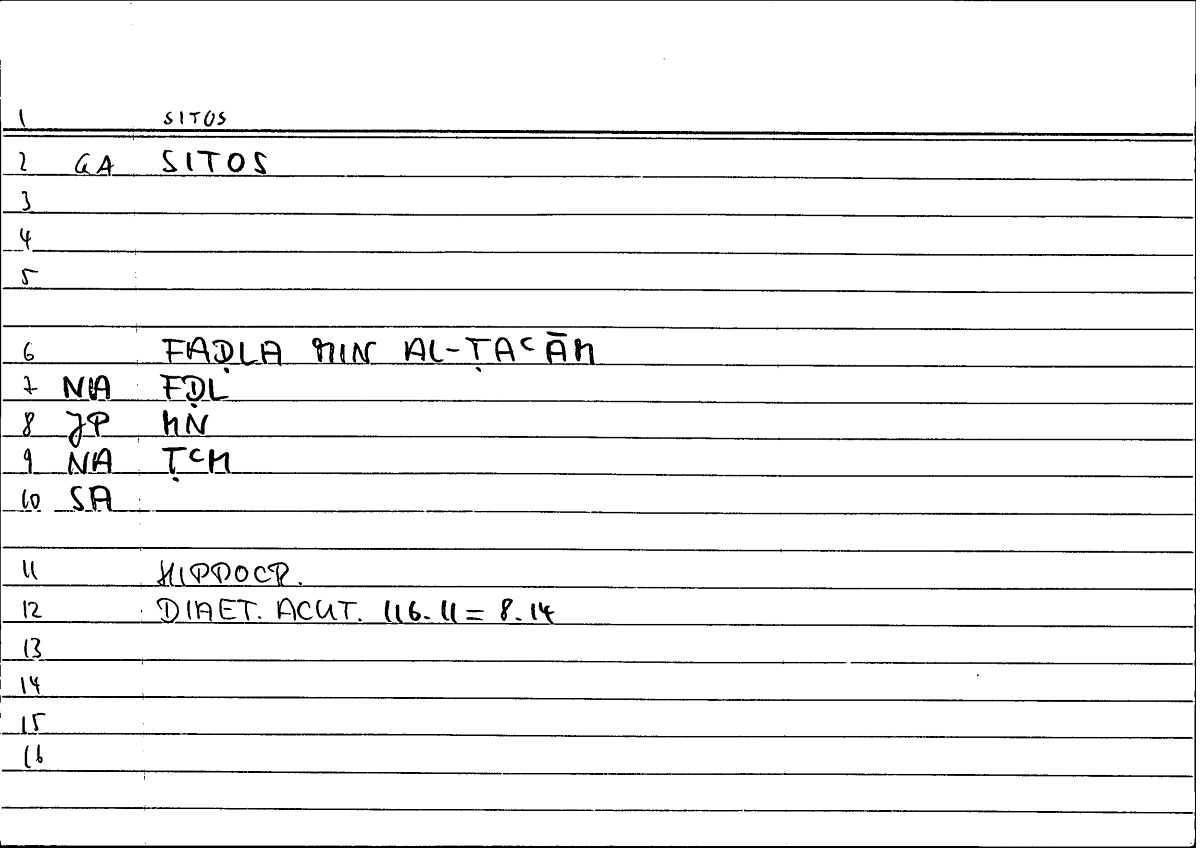 1 SITOS
2 GA SITOS
3
4
5
6 FAḌLA MIN AL-ṬAʿĀM
7 NA FḌL
8 JP MN
9 NA ṬʿM
10 SA
11 HIPPOCR.
12 DIAET. ACUT. 116.11 = 8.14
13
14
15
16